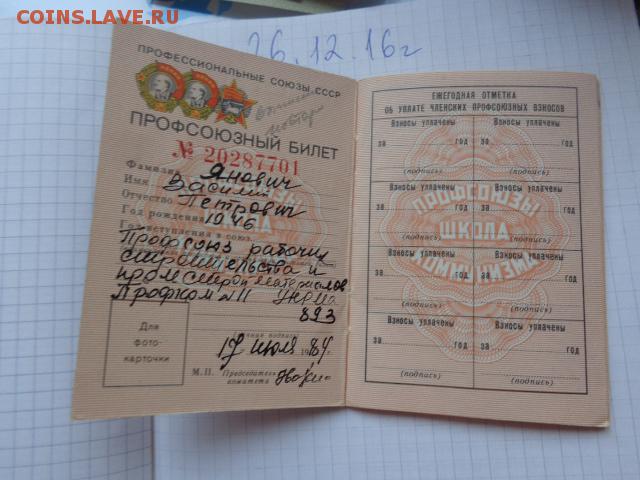 COINS.LAVE.RU
26.12.16г
ПРОФЕССИОНАЛЬНЫЕ СОЮЗЫ СССР
ПРОФСОЮЗНЫЙ БИЛЕТ
№ 20287701
Фамилия Янович
Имя Василий
Отчество Петрович
Год рождения 1946
Год вступления в союз
Профсоюз рабочих
строительства и
пром строй материалов
Профком
893
Для
фото-
карточки
(личная подпись)
17 июля 1984г.
М.П. Председатель
комитета
ЕЖЕГОДНАЯ ОТМЕТКА
ОБ УПЛАТЕ ЧЛЕНСКИХ ПРОФСОЮЗНЫХ ВЗНОСОВ
Взносы уплачены Взносы уплачены
за год за год
(подпись) (подпись)
Взносы уплачены Взносы уплачены
за год за год
(подпись) (подпись)
Взносы уплачены Взносы уплачены
за год за год
(подпись) (подпись)
Взносы уплачены Взносы уплачены
за год за год
(подпись) (подпись)
ПРОФСОЮЗЫ
ШКОЛА
КОММУНИЗМА